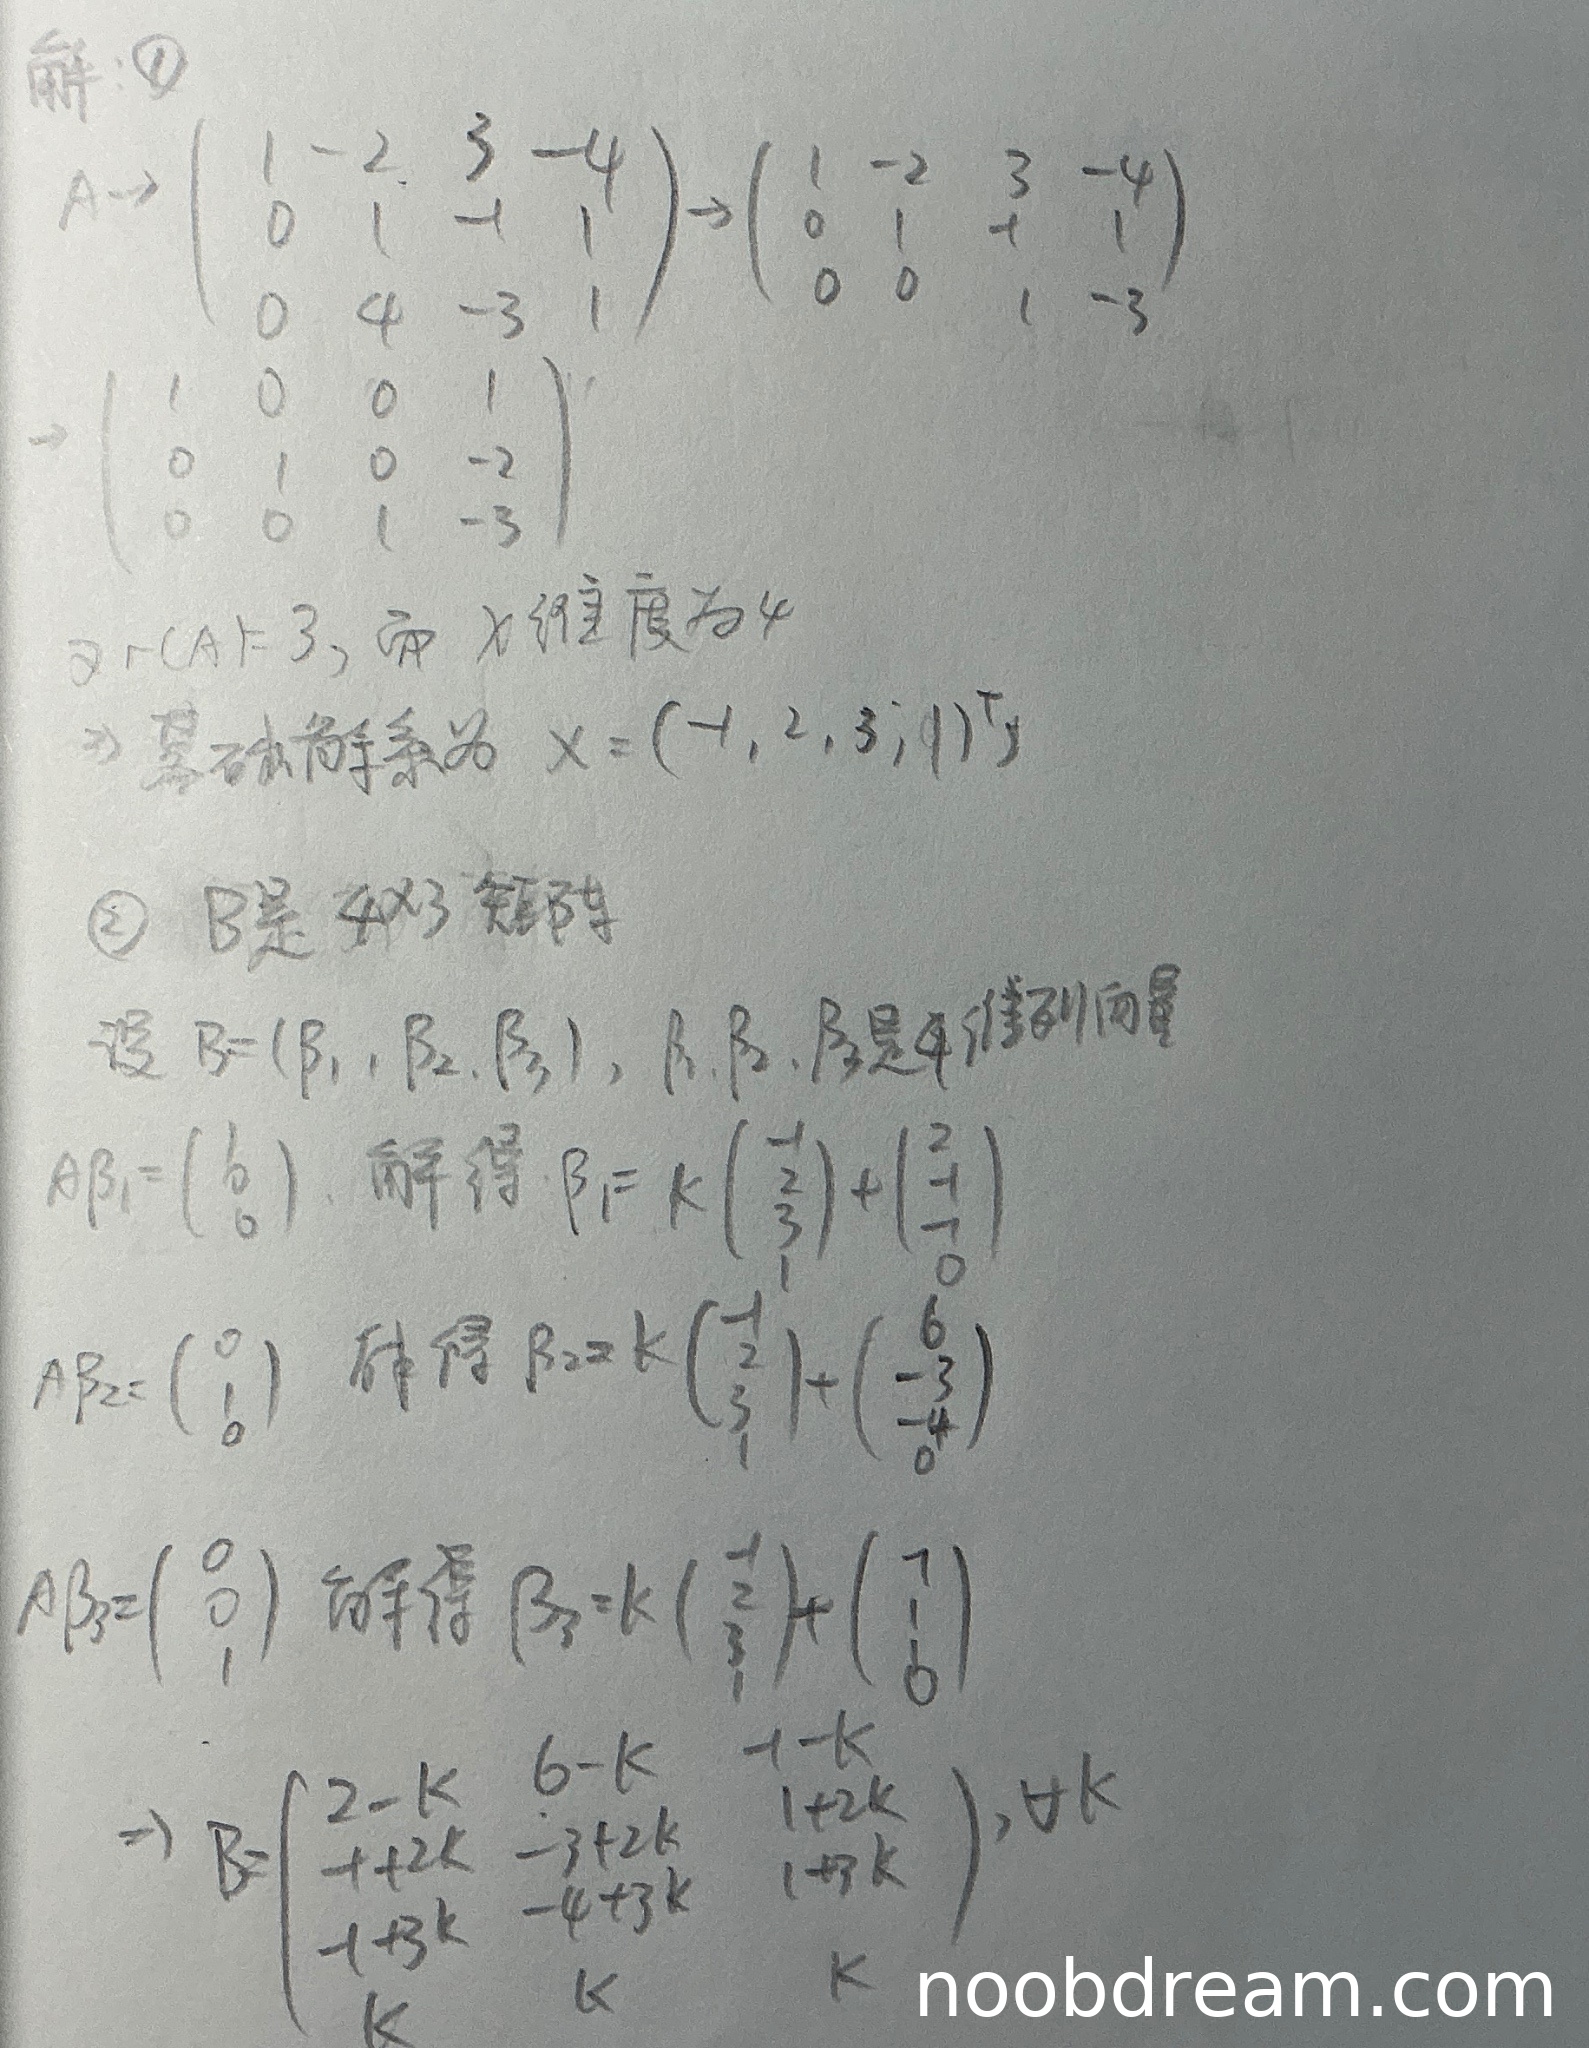 解:①
A→ ( 1 -2 3 -4 ) → ( 1 -2 3 -4 )
0 1 -1 1    0 1 -1 1
0 4 -3 1    0 0 1 -3
→ ( 1 0 0 1 )
0 1 0 -2
0 0 1 -3
r(A)=3, 而 X维度为4
⇒ 基础解系为 X=(-1, 2, 3, 1)ᵀ
② B是 4×3 矩阵
设 B=(β₁, β₂, β₃), β₁, β₂, β₃是4维列向量
Aβ₁=(1 0 0). 解得 β₁= k(-1 2 3 1)+(2 -1 -1 0)
Aβ₂=(0 1 0) 解得 β₂= k(-1 2 3 1)+(6 -3 -4 0)
Aβ₃=(0 0 1) 解得 β₃= k(-1 2 3 1)+(-1 1 1 0)
⇒ B=( 2-k 6-k -1-k ), ∀k
-1+2k -3+2k 1+2k
-1+3k -4+3k 1+3k
k k k
noobdream.com